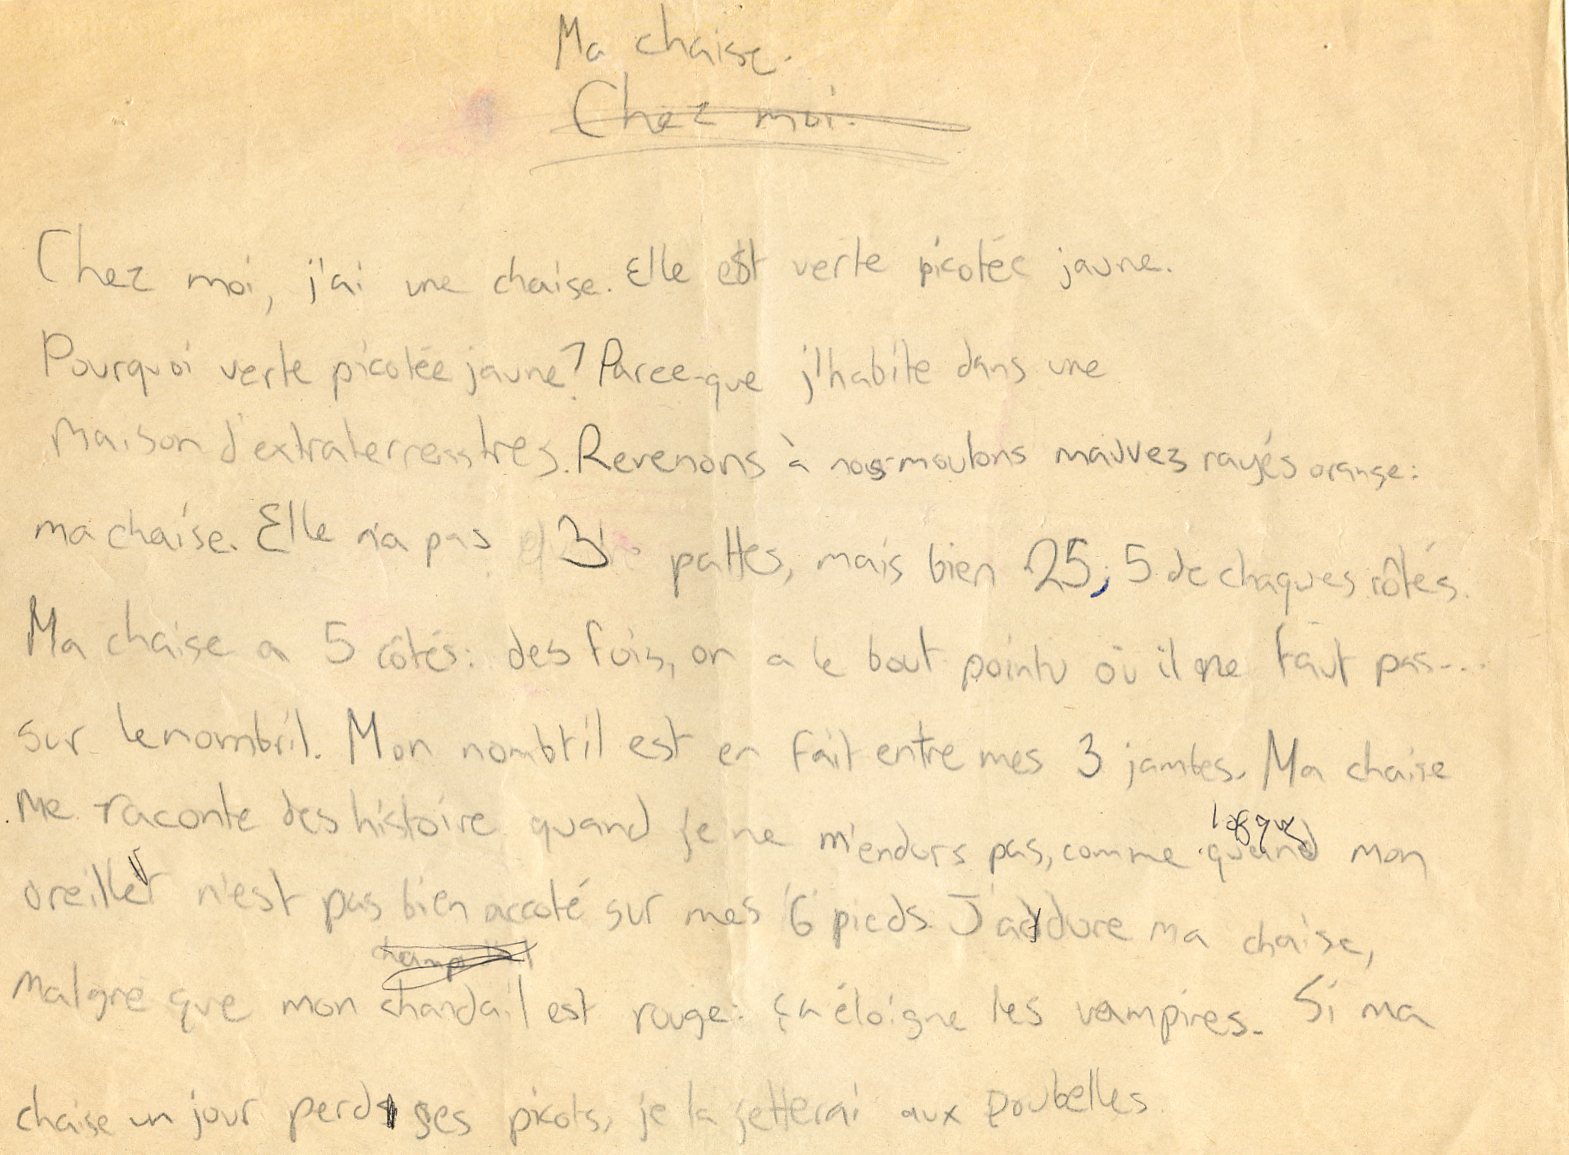 Ma chaise.
Chez moi.
Chez moi, j'ai une chaise. Elle est verte picotée jaune.
Pourquoi verte picotée jaune? Parce-que j'habite dans une
maison d'extraterrestres. Revenons à nos moutons mauves rayés orange:
ma chaise. Elle n'a pas 3 pattes, mais bien 25, 5 de chaques côtés.
Ma chaise a 5 côtés: des fois, on a le bout pointu où il ne faut pas...
sur le nombril. Mon nombril est en fait entre mes 3 jambes. Ma chaise
me raconte des histoire quand je ne m'endors pas, comme quand mon
oreiller n'est pas bien accoté sur mes 6 pieds. J'adore ma chaise,
malgré que mon chandail est rouge: ça éloigne les vampires. Si ma
chaise un jour perd ses picots, je la jetterai aux poubelles